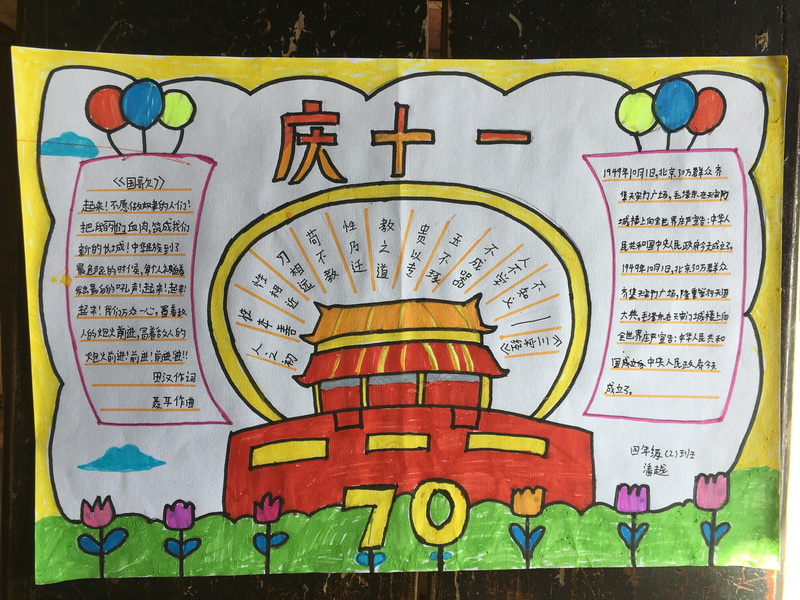 庆十一
《国歌》
起来!不愿做奴隶的人们!
把我们的血肉,筑成我们
新的长城!中华民族到了
最危险的时候,每个人被迫着
发出最后的吼声!起来!起来!
起来!我们万众一心,冒着敌
人的炮火前进,冒着敌人的
炮火前进!前进!前进!进!!
田汉作词
聂耳作曲
人之初
性本善
性相近
习相远
苟不教
性乃迁
教之道
贵以专
玉不琢
不成器
人不学
不知义
——《三字经》
1949年10月1日,北京30万群众齐
集天安门广场,毛泽东在天安门
城楼上向全世界庄严宣告:中华人
民共和国中央人民政府今天成立了。
1949年10月1日,北京30万群众
齐集天安门广场,隆重举行开国
大典,毛泽东在天安门城楼上向
全世界庄严宣告:中华人民共和
国成立了,中央人民政府今天
成立了。
四年级(2)班
潘越
70